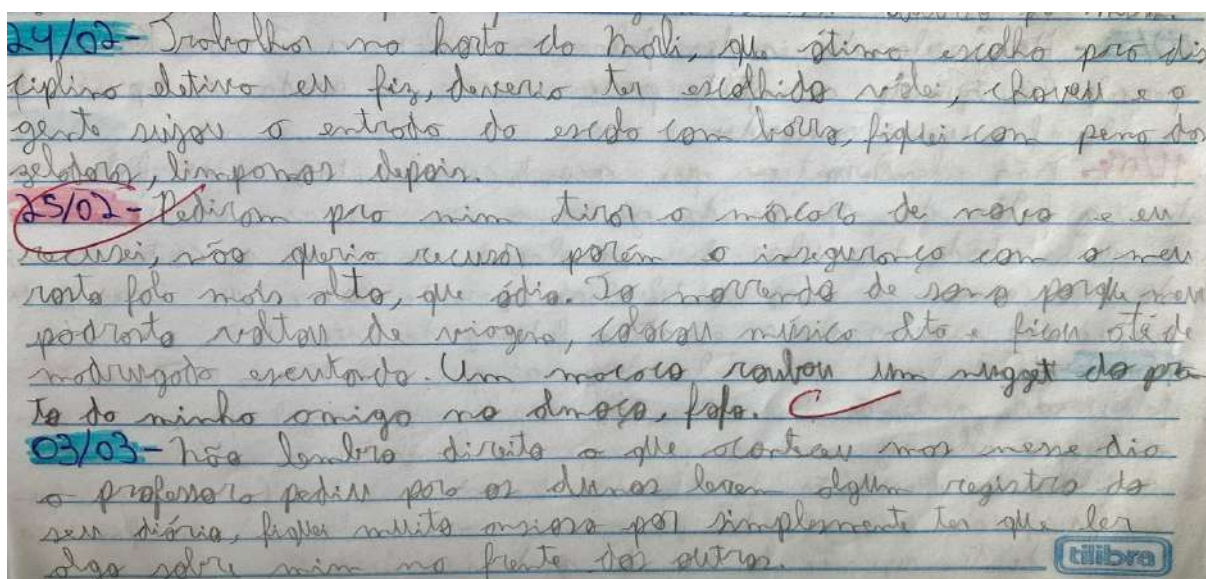 24/02- Trabalhar na horta do Marli, que ótima escolha pro dis
ciplina eletiva eu fiz, deveria ter escolhido vôlei, choveu e a
gente sujou a entrada da escola com barro, fiquei com pena das
zeladoras, limpamos depois.
25/02- Pediram pra mim tirar a máscara de novo e eu
recusei, não queria recusar porém a insegurança com o meu
rosto fala mais alto, que ódio. To morrendo de sono porque meu
padrasto voltou de viagem, colocou música alta e ficou até de
madrugada escutando. Um macaco roubou um nugget do pra
to da minha amiga no almoço, fofo.
03/03- Não lembro direito o que aconteceu mas nesse dia
a professora pediu para os alunos lerem algum registro do
seu diário, fiquei muito ansiosa por simplesmente ter que ler
algo sobre mim na frente dos outros.
tilibra